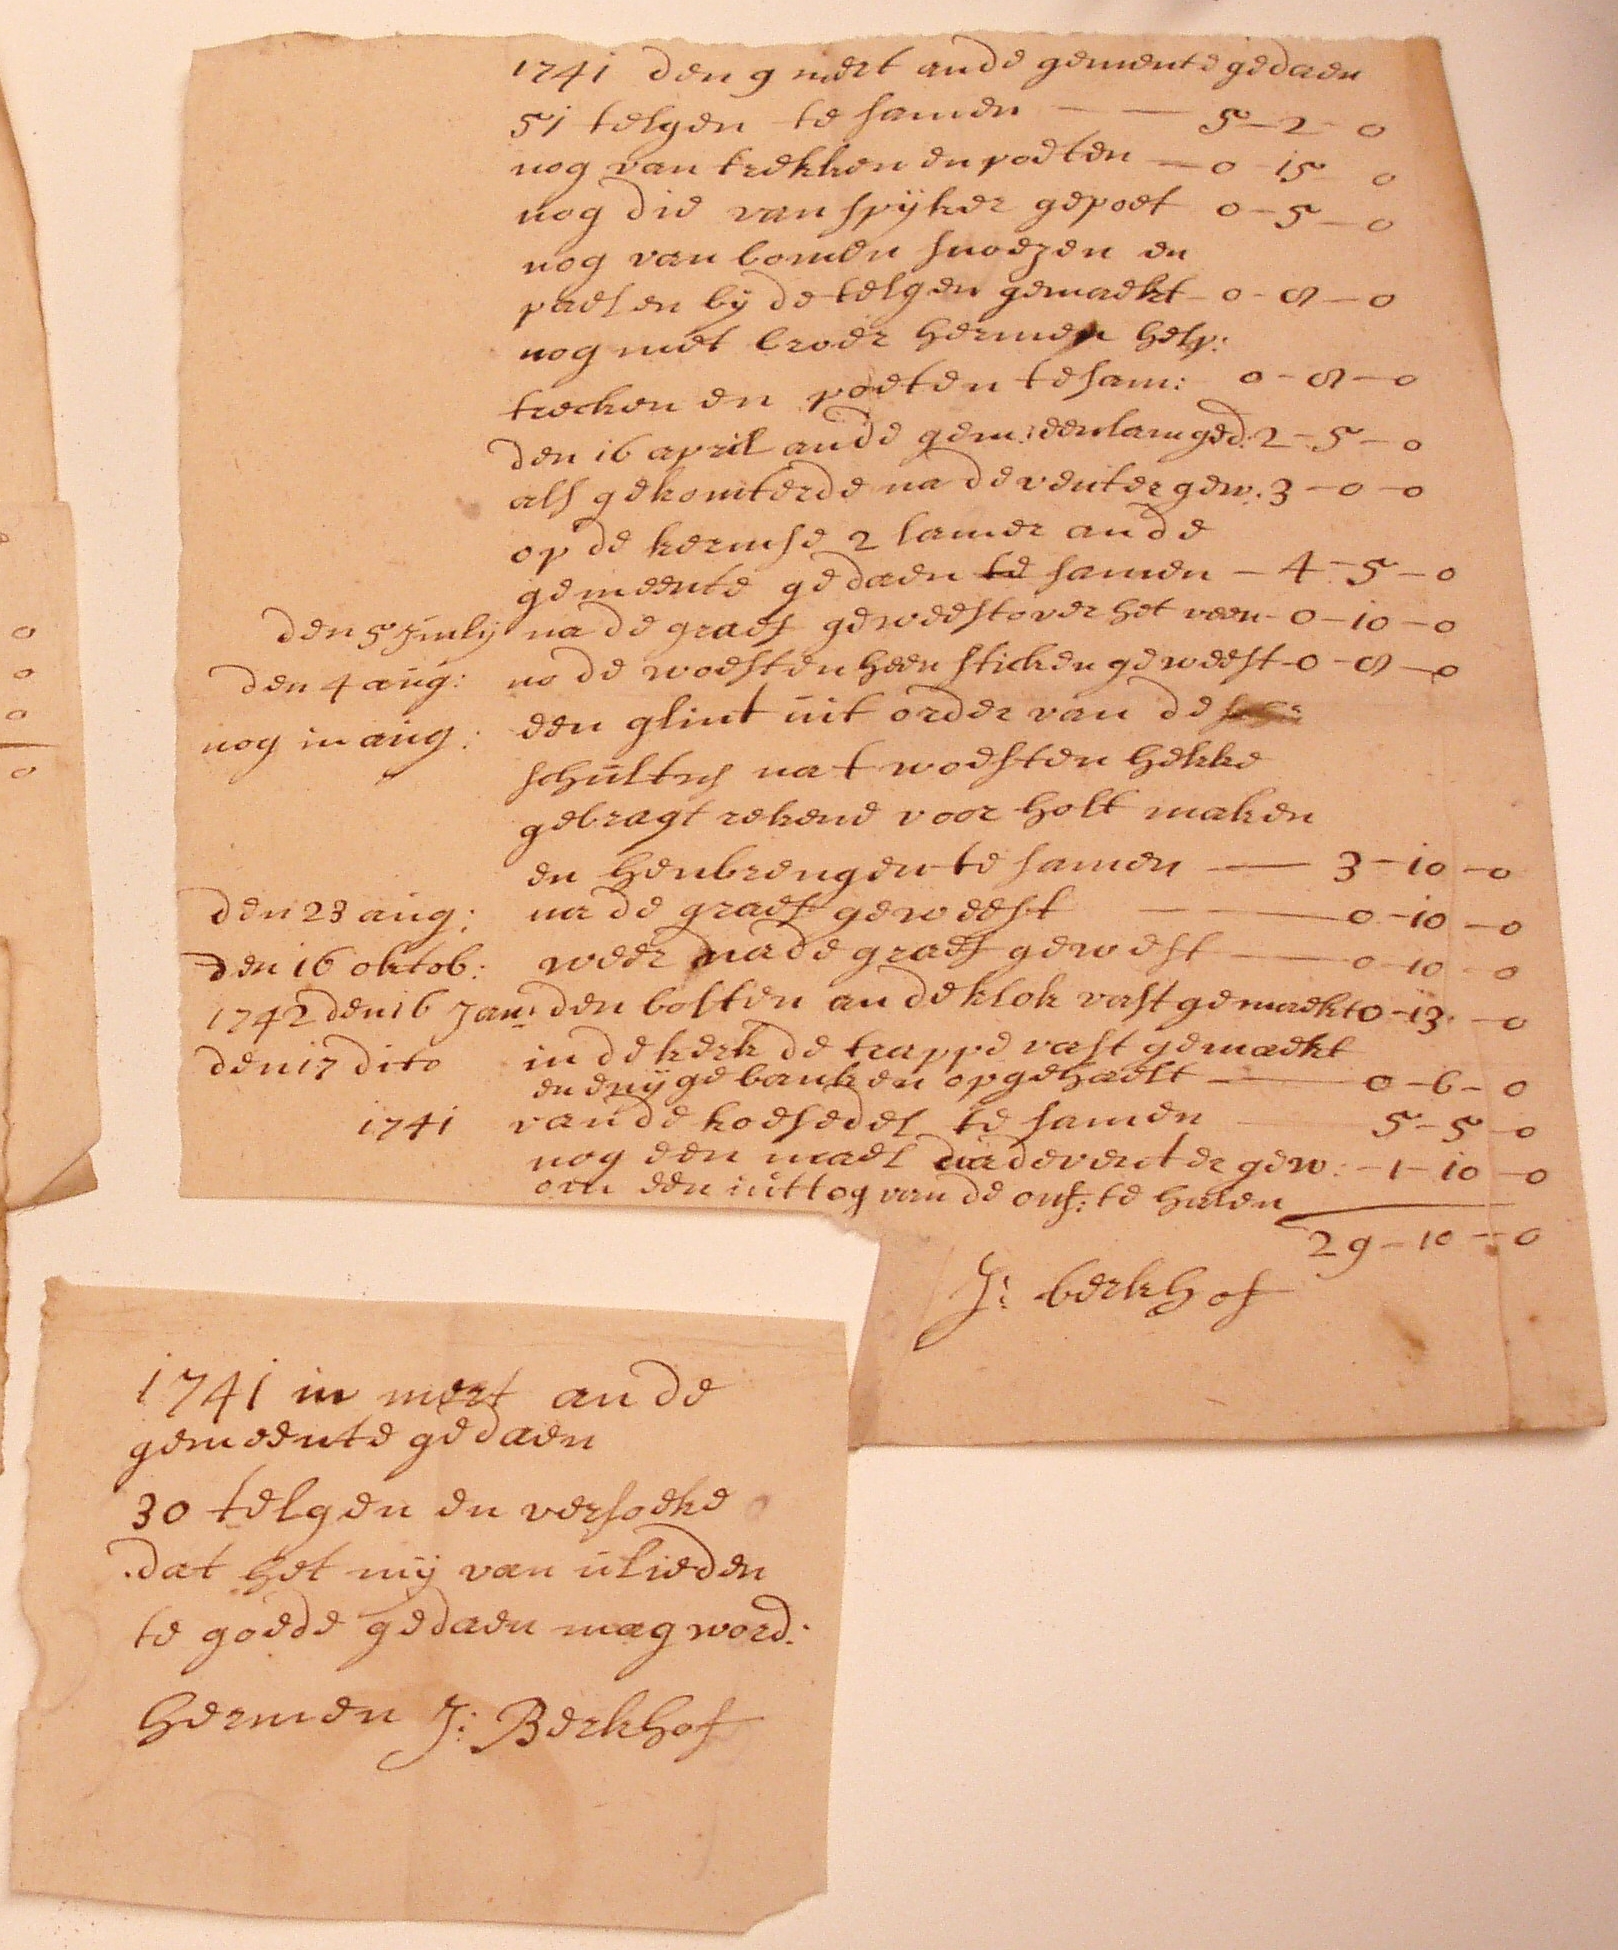 1741 den 9 mert ande gemente gedaen
51 telgen te samen — — 5-2-0
nog van trekken en poeten — 0-15-0
nog die van spyker gepoet 0-5-0
nog van bomen snoezen en
paelen by de telgen gemaekt - 0-8-0
nog met broer hermen help:
trecken en poeten te sam: 0-8-0
den 16 april ande gem: een lam ged: 2-5-0
als gekomterde na deventer gew: 3-0-0
op de kermse 2 lamer ande
gemeente gedaen te samen - 4-5-0
den 5 Juuly na de graef geweest over het veen - 0-10-0
den 4 aug: no de woesten heen sticken geweest - 0-8-0
nog in aug: een glint uit order van de
schultes na t woesten hekke
gebragt rekene voor holt maken
en henbrengen te samen — 3-10-0
den 23 aug: na de graef geweest — 0-10-0
den 16 oktob: weer na de graef gewest — 0-10-0
1742 den 16 Jan: den bolten an de klok vast gemaekt 0-13-0
den 17 dito in de kerk de trappe vast gemaekt
en enyge banken opgehaelt — 0-6-0
1741 van de koesedel te samen 5-5-0
nog een mael na deventer gew: - 1-10-0
om een uittog van de onf: te halen
29-10-0
J: berkhof
1741 in mert an de
gemeente gedaen
30 telgen en versoeke
dat het my van ulieden
te goede gedaen mag word:
Hermen J: Berkhof
0
0
0
0